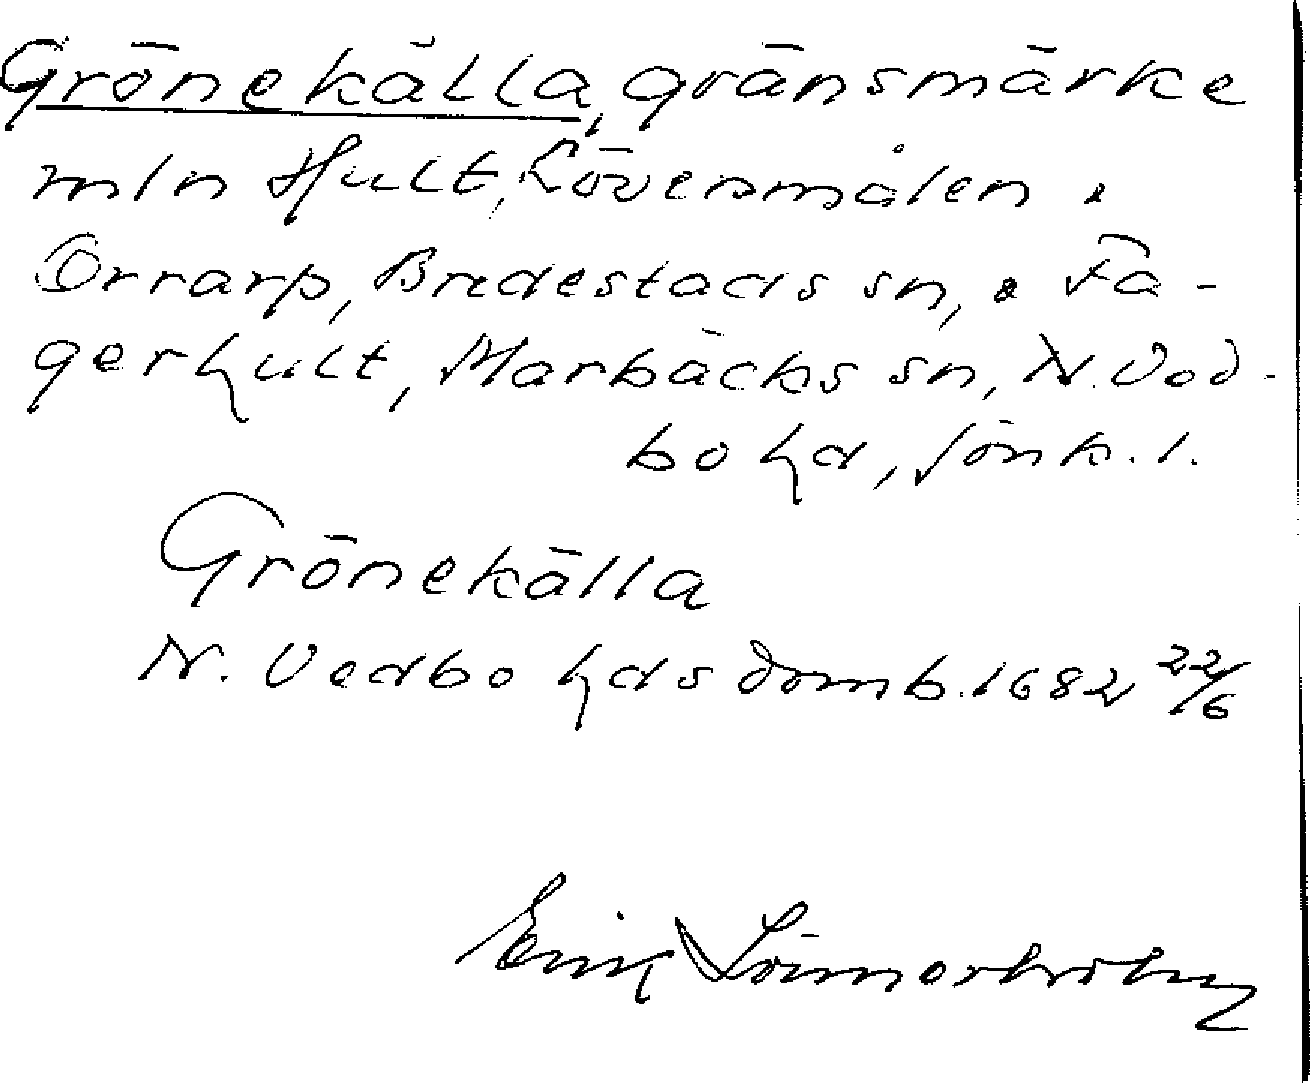 Grönekälla, gränsmärke
mln Hult, Lövenmålen o
Orrarp, Bredestads sn, o Fa-
gerhult, Marbäcks sn, N. Ved-
bo hd, Jönk. l.
Grönekälla
N. Vedbo hds domb. 1682 22/6
Erik